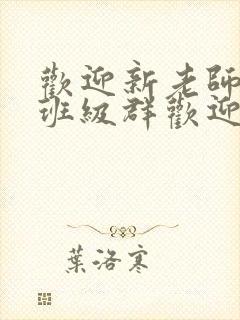 歡迎新老師
班級群歡迎
葉洛寒